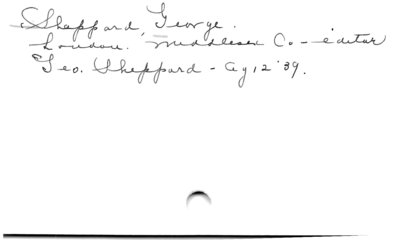 Sheppard, George.
London. Middlesex Co - editor
Geo. Sheppard - Ag 12 '39.